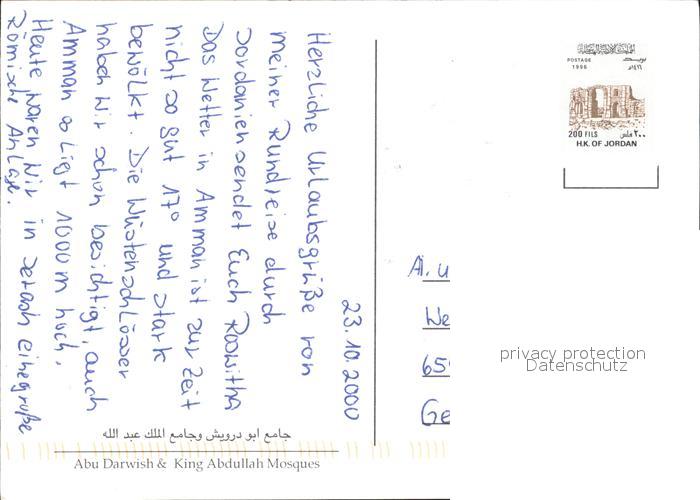 23.10.2000
Herzliche Urlaubsgrüße von
meiner Rundreise durch
Jordanien sendet Euch Roswitha
Das Wetter in Amman ist zur Zeit
nicht so gut 17° und stark
bewölkt. Die Wüstenschlösser
haben wir schon besichtigt, auch
Amman liegt 1000 m hoch.
Heute waren wir in Jerash eine große
Römische Anlage.
جامع ابو درويش وجامع الملك عبد الله
Abu Darwish & King Abdullah Mosques
POSTAGE
1996
200 FILS ٢٠٠ فلس
H.K. OF JORDAN
We
65
Ge
privacy protection
Datenschutz